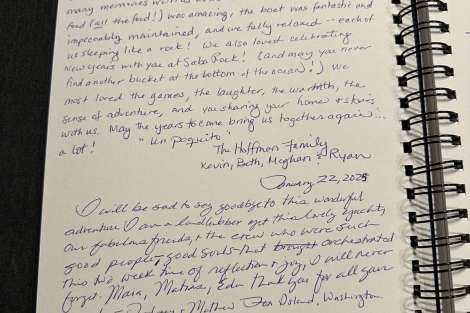 many memories
food (all the food!) was amazing, the boat was fantastic and
impeccably maintained, and we fully relaxed -- each of
us sleeping like a rock! We also loved celebrating
New Years with you at Saba Rock! (and may you never
find another bucket at the bottom of the ocean!) We
most loved the games, the laughter, the warmth, the
sense of adventure, and you sharing your home & stories
with us. May the years to come bring us together again...
a lot! "Un Poquito"
The Hoffman Family
Kevin, Beth, Meghan & Ryan
January 22, 2025
I will be sad to say goodbye to this wonderful
adventure. I am a landlubber yet this lovely yacht,
our fabulous friends, & the crew who were such
good people, good souls that brought orchestrated
this two week time of reflection & joy, I will never
forget. Mara, Edu thank you for all you
Mother Washington